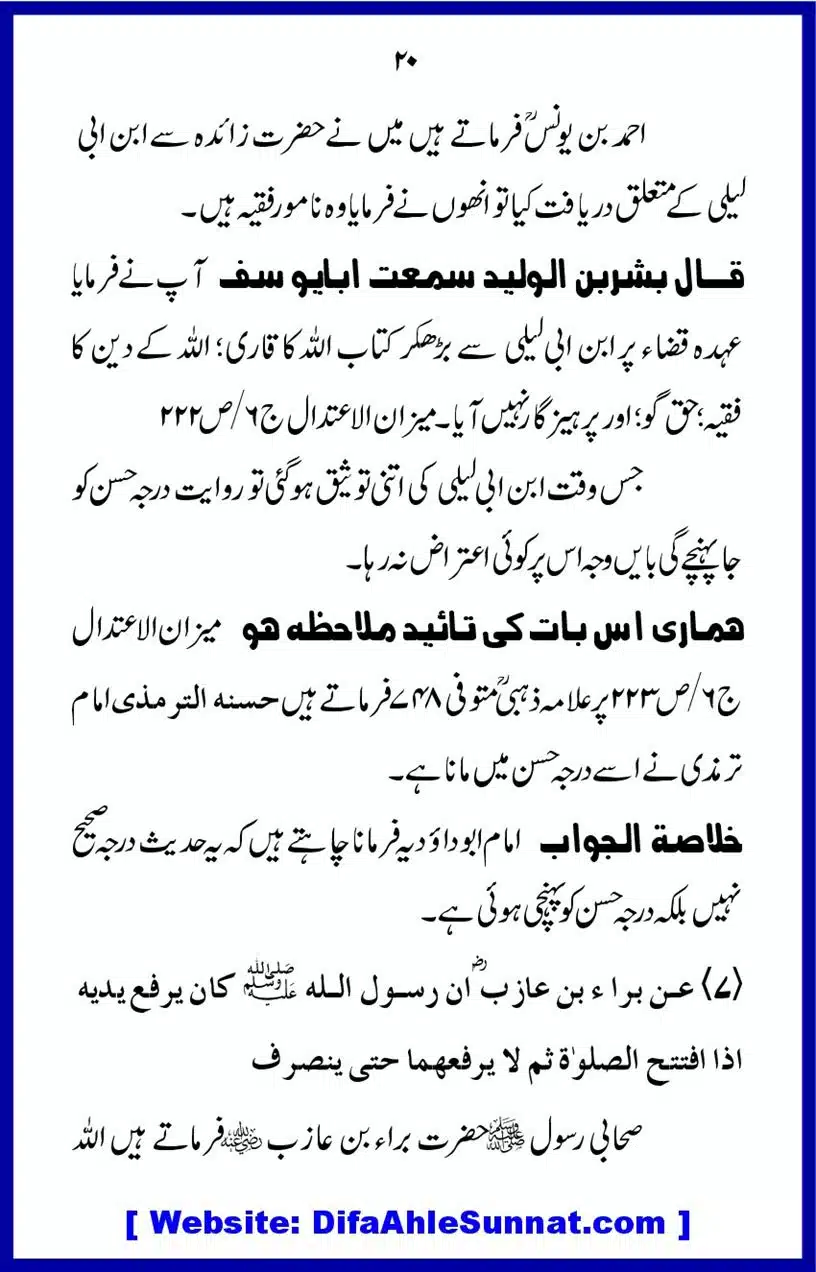 ۲۰
احمد بن یونسؒ فرماتے ہیں میں نے حضرت زائدہ سے ابن ابی
لیلی کے متعلق دریافت کیا تو انھوں نے فرمایا وہ نامور فقیہ ہیں۔
قال بشر بن الولید سمعت ابایو سف آپ نے فرمایا
عہدہ قضاء پر ابن ابی لیلی سے بڑھکر کتاب اللہ کا قاری؛ اللہ کے دین کا
فقیہ؛ حق گو؛ اور پرہیز گار نہیں آیا۔ میزان الاعتدال ج۶/ص۲۲۲
جس وقت ابن ابی لیلی کی اتنی توثیق ہوگئی تو روایت درجہ حسن کو
جا پہنچے گی بایں وجہ اس پر کوئی اعتراض نہ رہا۔
ھماری اس بات کی تائید ملاحظہ ھو میزان الاعتدال
ج۶/ص۲۲۳ پر علامہ ذہبیؒ متوفی ۷۴۸ فرماتے ہیں حسنه الترمذی امام
ترمذی نے اسے درجہ حسن میں مانا ہے۔
خلاصة الجواب امام ابو داؤد یہ فرمانا چاہتے ہیں کہ یہ حدیث درجہ صحیح
نہیں بلکہ درجہ حسن کو پہنچی ہوئی ہے۔
⟨۷⟩ عن براء بن عازبؓ ان رسول الله ﷺ کان یرفع یدیه
اذا افتتح الصلوٰة ثم لا یرفعهما حتی ینصرف
صحابی رسول ﷺ حضرت براء بن عازب رضی اللہ عنہ فرماتے ہیں اللہ
[ Website: DifaAhleSunnat.com ]